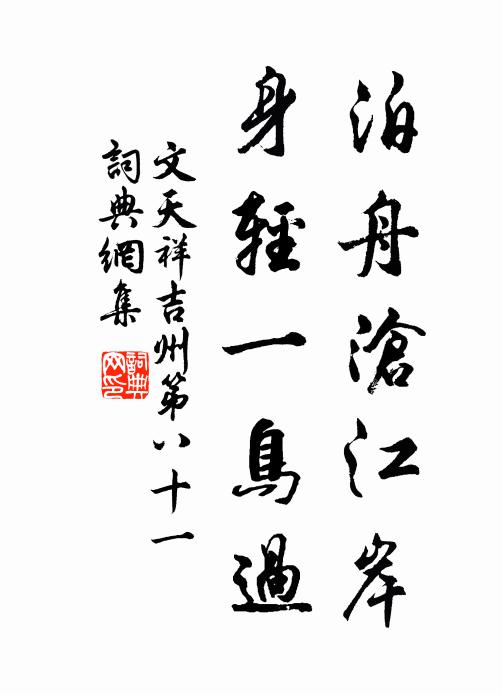 泊舟滄江岸
身輕一鳥過
文天祥吉州第八十一
詞典網集
詞典網印